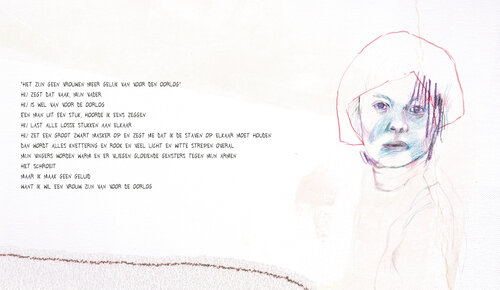 "HET ZIJN GEEN VROUWEN MEER GELIJK VAN VOOR DEN OORLOG"
HIJ ZEGT DAT VAAK, MIJN VADER
HIJ IS WEL VAN VOOR DE OORLOG
EEN MAN UIT EEN STUK, HOORDE IK EENS ZEGGEN
HIJ LAST ALLE LOSSE STUKKEN AAN ELKAAR
HIJ ZET EEN GROOT ZWART MASKER OP EN ZEGT ME DAT IK DE STAVEN OP ELKAAR MOET HOUDEN
DAN WORDT ALLES KNETTERING EN ROOK EN VEEL LICHT EN WITTE STREPEN OVERAL
MIJN VINGERS WORDEN WARM EN ER VLIEGEN GLOEIENDE GENSTERS TEGEN MIJN ARMEN
HET SCHROEIT
MAAR IK MAAK GEEN GELUID
WANT IK WIL EEN VROUW ZIJN VAN VOOR DE OORLOG